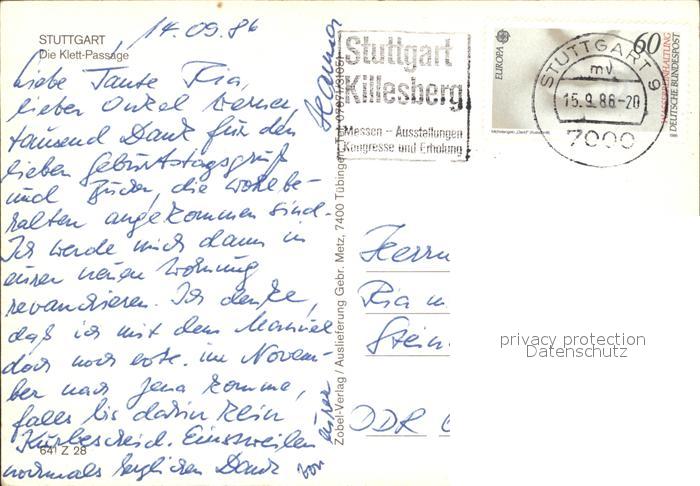 14.09.86
STUTTGART
Die Klett-Passage
Liebe Tante Ria,
lieber Onkel Werner,
tausend Dank für den
lieben Geburtstagsgruß
und Bücher, die wohlbe-
halten angekommen sind.
Ich werde mich dann in
eurer neuen Wohnung
revanchieren. Ich denke,
daß ich mit dem Manuel
doch noch evtl. im Novem-
ber nach Jena komme,
falls bis dahin kein
Kurbescheid. Einstweilen
nochmals herzlichen Dank von
eurer
Hanna
641 Z 28
Zobel-Verlag / Auslieferung Gebr. Metz, 7400 Tübingen, Tel.
Stuttgart
Killesberg
Messen – Ausstellungen
Kongresse und Erholung
EUROPA
60
DEUTSCHE BUNDESPOST
STUTTGART 9
mv
15.9.86-20
7000
Herrn
Ria u
Stein
DDR
privacy protection
Datenschutz